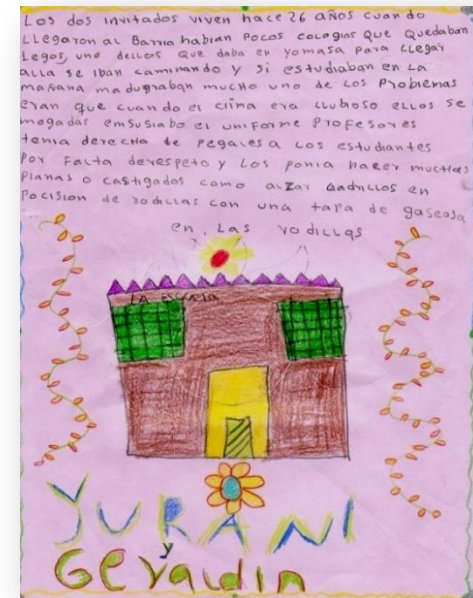 Los dos invitados viven hace 26 años cuando
LLegaron al Barrio habian pocos colegios que quedaban
Legos, uno dellos que daba en yomasa para LLegar
alla se iban caminando y si estudiaban en La
mañana madugraban mucho uno de Los Problemas
eran que cuando el clima era LLuboso ellos se
mogadas emsusiabo el uniforme Profesores
temia derecho de pegares a Los estudiantes
Por Falta de respeto y Los ponia hacer muchas
Planas o castigados como alzar Ladrillos en
Pocision de rodillas con una tapa de gaseosa
en Las rodillas
LA escuela
YURANI
y
Geraldin